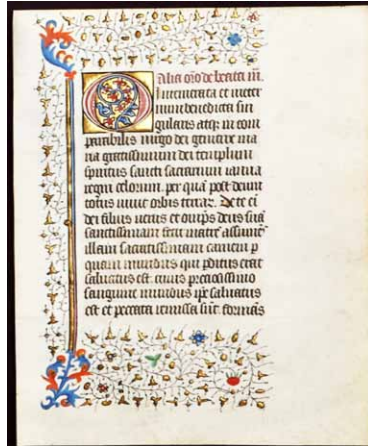 Alia oro de beata m.
Intemerata et in eter
num benedicta sin
gularis atqz in com
parabilis uirgo dei genitrix ma
ria gratissimum dei templum
spiritus sancti sacrarium ianua
regni celorum. per quã post deum
totus uiuit orbis terrar. De te
dei filius uerus et omps deus suã
sanctissimam fecit matrẽ assumẽs
illam sacratissimam carnem p
quam mundus qui pditus erat
saluatus est. cuius preciosissimo
sanguine mundus ipe saluatus
est et peccata remissa sũt.